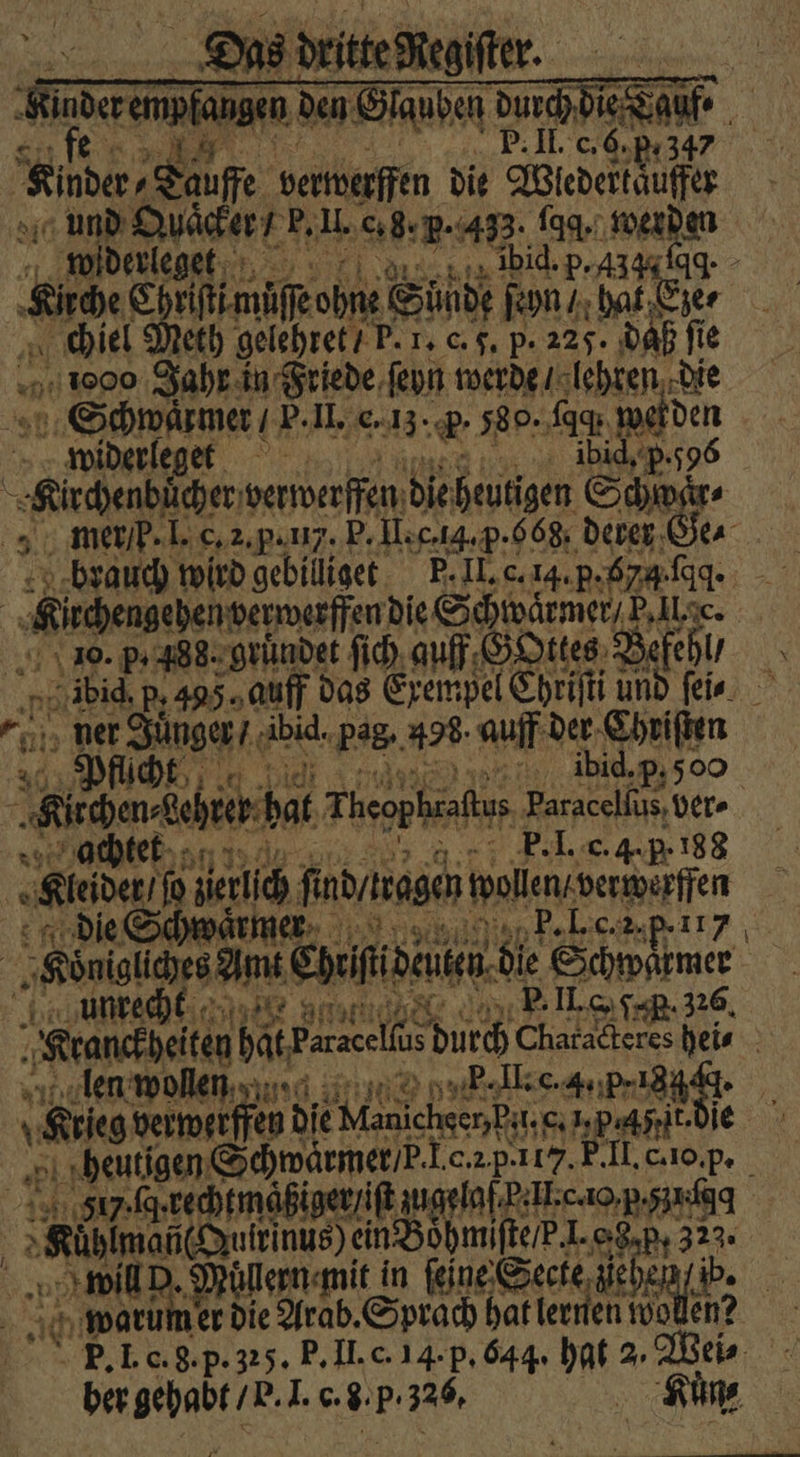 Das dritte Regiſter.
Kinder empfangen den Glauben durch die Tauf⸗
fe P. II. c. 6. p. 347
Kinder⸗Tauffe verwerffen die Wiedertäuffer
und Quäcker / P. II. c. 8. p. 433. ſqq. werden
widerleget ibid. p. 434. ſqq.
Kirche Chriſti müſſe ohne Sünde ſeyn / hat Eze⸗
chiel Meth gelehret / P. 1. c. 5. p. 225. daß ſie
1000 Jahr in Friede ſeyn werde / lehren die
Schwärmer / P. II. c. 13. p. 580. ſqq. werden
widerleget ibid. p. 596
Kirchenbücher verwerffen die heutigen Schwär⸗
mer / P. I. c. 2. p. 117. P. II. c. 14. p. 668. derer Ge⸗
brauch wird gebilliget P. II. c. 14. p. 674. ſqq.
Kirchengehen verwerffen die Schwärmer / P. II. c.
10. p. 488. gründet ſich auff GOttes Befehl /
ibid. p. 495. auff das Exempel Chriſti und ſei⸗
ner Jünger / ibid. pag. 498. auff der Chriſten
Pflicht ibid. p. 500
Kirchen⸗Lehrer hat Theophraſtus Paracelſus ver⸗
achtet P. I. c. 4. p. 188
Kleider / ſo zierlich ſind / tragen wollen / verwerffen
die Schwärmer P. I. c. 2. p. 117
Königliches Amt Chriſti deuten die Schwärmer
unrecht P. II. c. 5. p. 326.
Kranckheiten hat Paracelſus durch Characteres hei⸗
len wollen P. II. c. 4. p. 184. ſq.
Krieg verwerffen die Manicheer, P. I. c. 1. p. 45. it. die
heutigen Schwärmer / P. I. c. 2. p. 117. P. II. c. 10. p.
517. ſq. rechtmäßiger / iſt zugelaſ. P. II. c. 10. p. 531. ſqq
Kühlmañ (Quirinus) ein Böhmiſte / P. I. c. 8. p. 323.
will D. Müllern mit in ſeine Secte ziehen / ib.
warum er die Arab. Sprach hat lernen wollen?
P. I. c. 8. p. 325. P. II. c. 14. p. 644. hat 2. Wei⸗
ber gehabt / P. I. c. 8. p. 326. Kün⸗